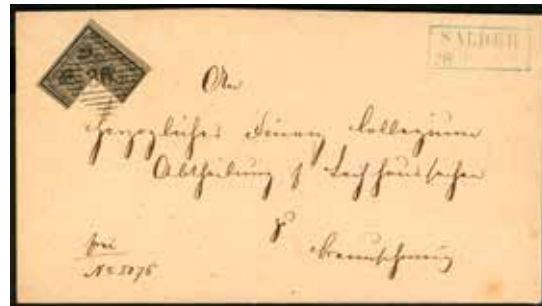 SALDER
28
An
Herzogliches Finanz Collegium
Abtheilung f Leihhaussachen
Braunschweig
frei
No 5076